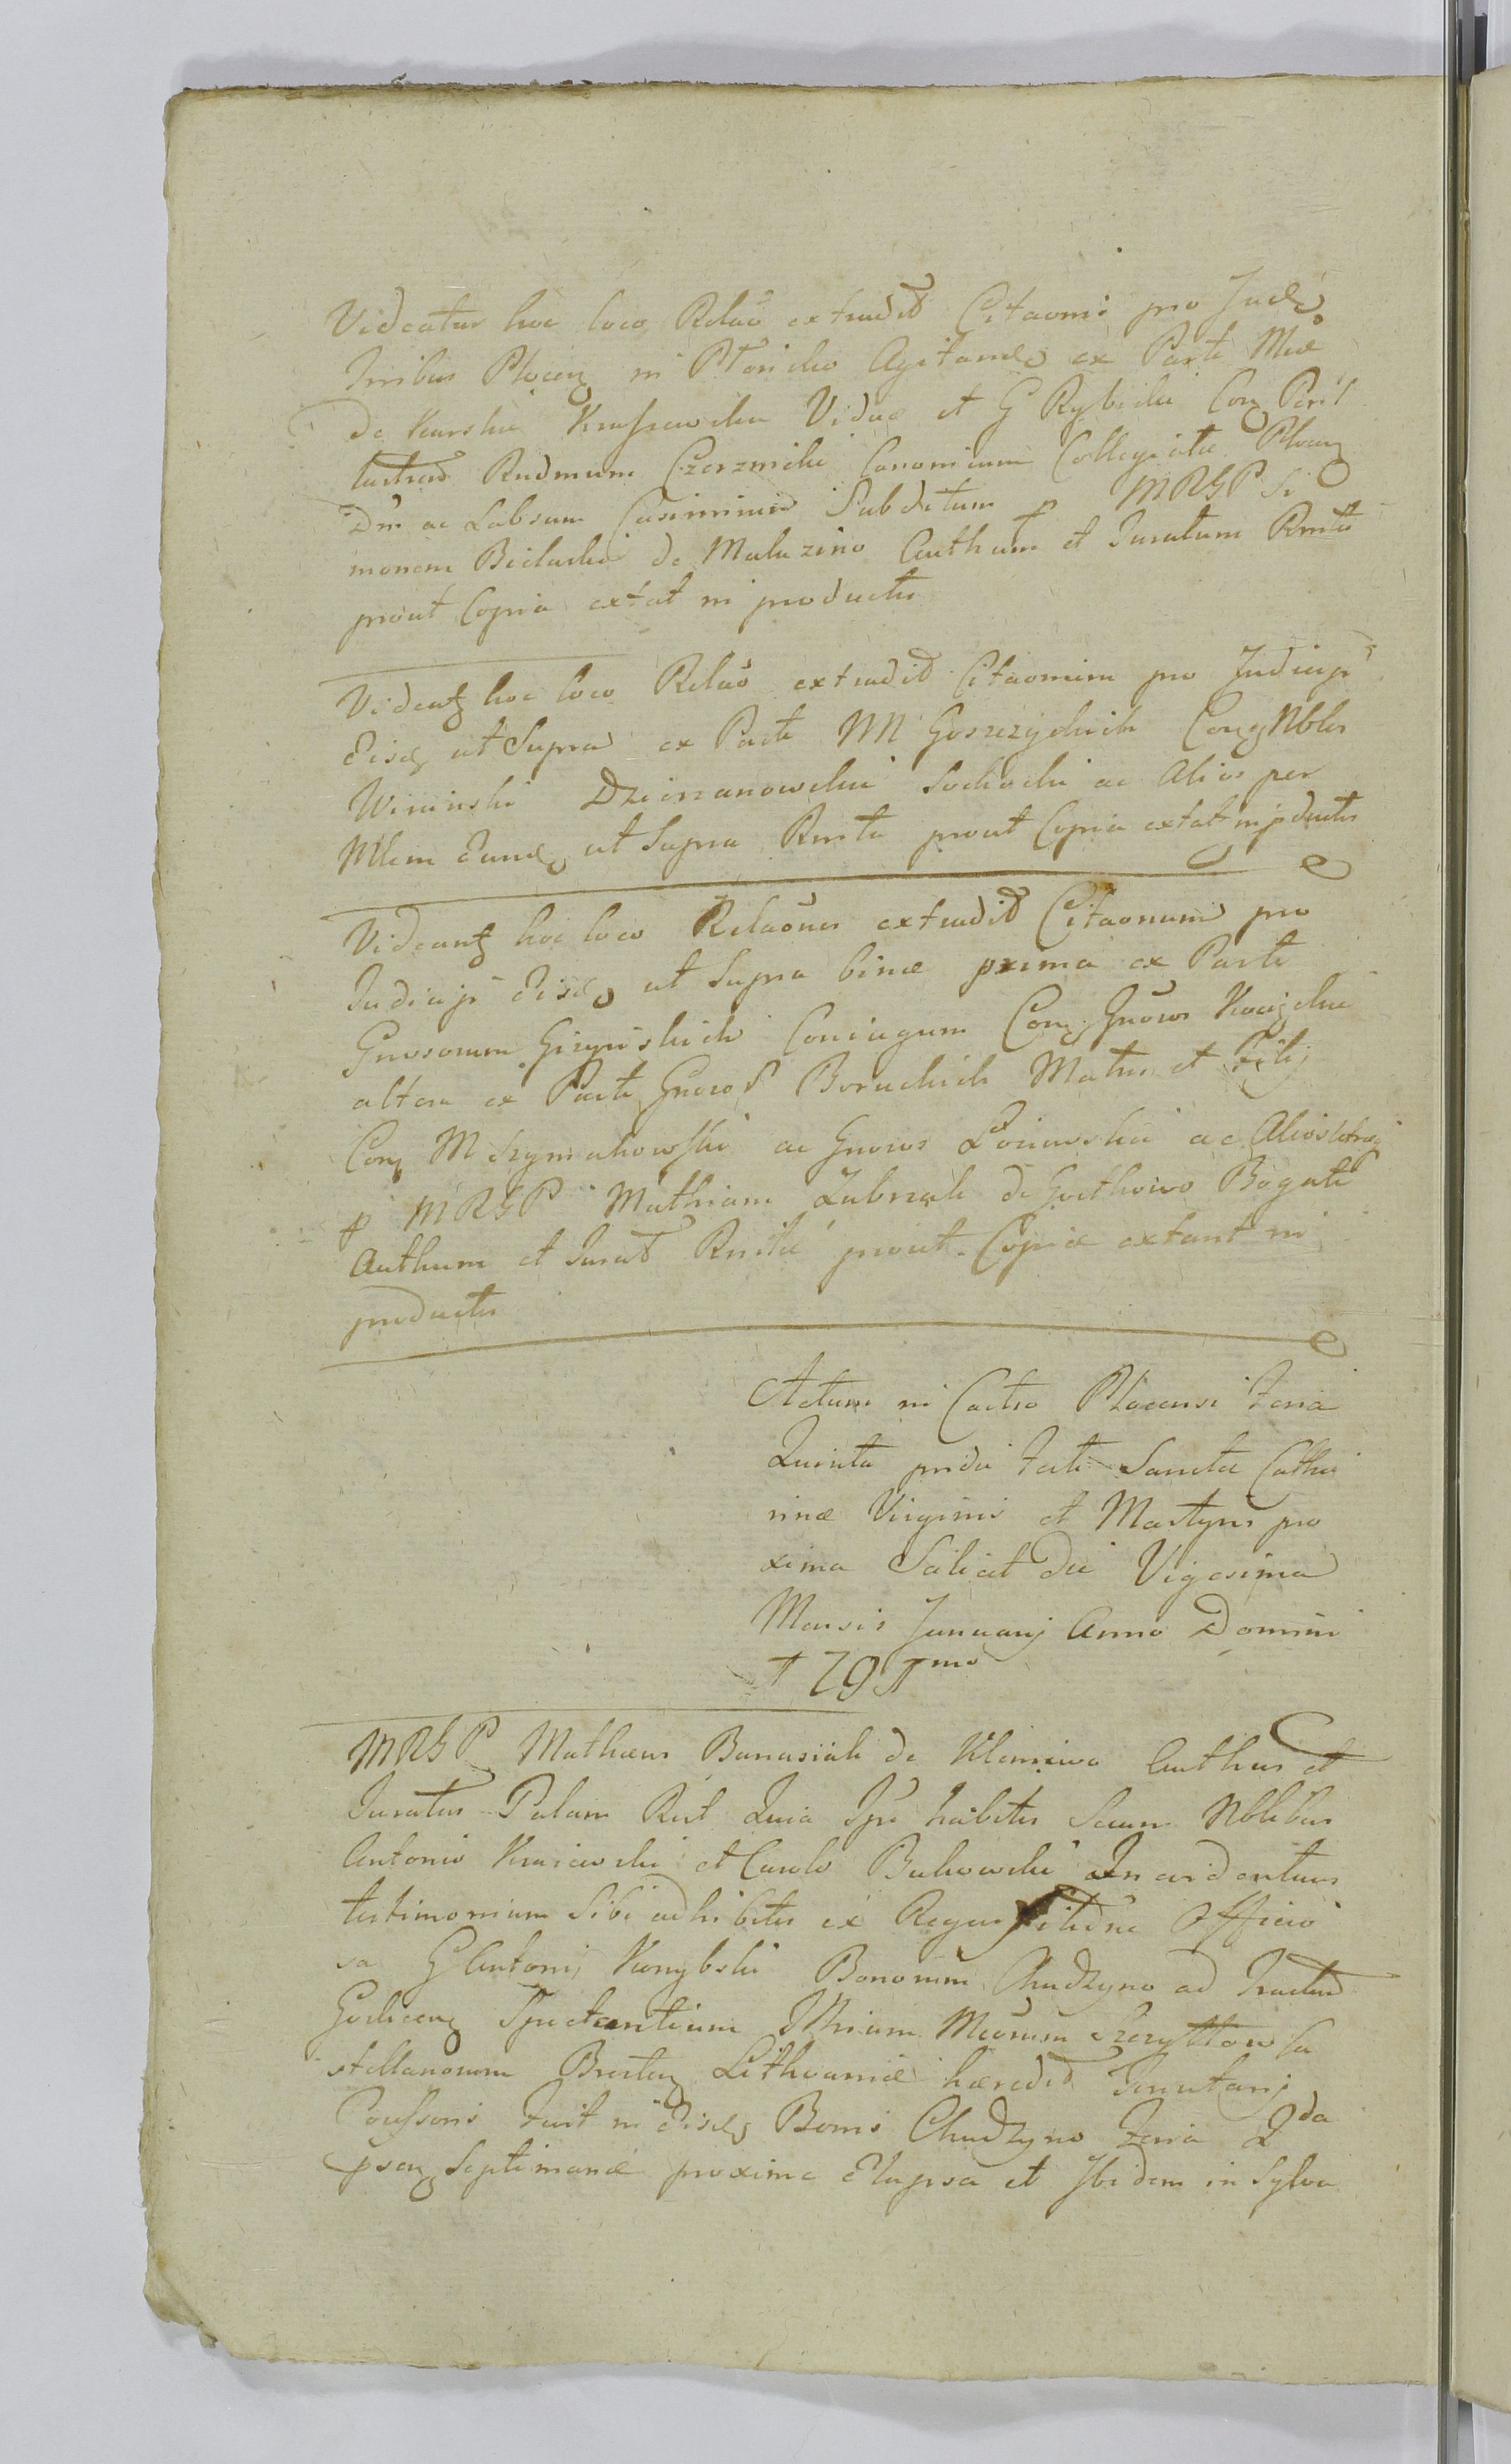 Videatur hoc loco Relaō extradit Citaonis pro Judę
Irribus Plocen in Ptoricko Agitandę ex Parte Mcae
De Karska Krassewska Viduae et G Rybicka Con Peril
lustrem Rndmum Czerznicki Canonicum Collegiatae Plocen
Dm ac Labsum Casimirum Subditum p MRGP Si
monem Bielaski de Maluzino Authum et Juratum Rnita
prout Copia extat in productis
Videatz hoc loco Relaō extradit Citaonum pro Judicijs
Eisd ut Supra ex Parte MM Goszczyckich Con Nbles
Wininski Dzierzanowski Sochocki ac Alios per
Mlem Eund ut Supra Rnita prout Copia extat in pductis
Videantz hoc loco Relaones extradit Citaonum pro
Judicijs Eisd ut Supra binae prima ex Parte
Gnosorum Gizynskich Coniugum Con Gnosos Kocizckie
altera ex Parte Gnosos Boruckich Matris et Filij
Con M Szymakowski ac Gnosos Loniewskie ac Alios
p MRGP Mathiam Zubrzak de Goethowo Bogate
Authum et Jurat Rnitae prout Copiae extant in
productis
Actum in Castro Plocensi Feria
Quinta pridie Festi Sanctae Catha
rinae Virginis et Martyris pro
xima Scilicet die Vigesima
Mensis Januarij Anno Domini
1791mo
MRGP Mathaeus Banasiak de Kleniewo Authus et
Juratus Palam Rect Quia Ipse habitis Secum Nblibus
Antonio Kraiewski et Carolo Bukowski In evidentius
testimonium Sibi adhibitis ex Requisitione Officio
sa G Antonij Konybski Bonorum Chudzyno ad Tractum
Goslicen Spectantium Illrium Mcorum Szczyttow Ca
stellanorum Bresten Lithvaniae haeredit Tenutarij
Possoris Fuit in Eisd Bonis Chudzyno Feria 2da
psen Septimanae proxime Elapsa et Ibidem in Sylva